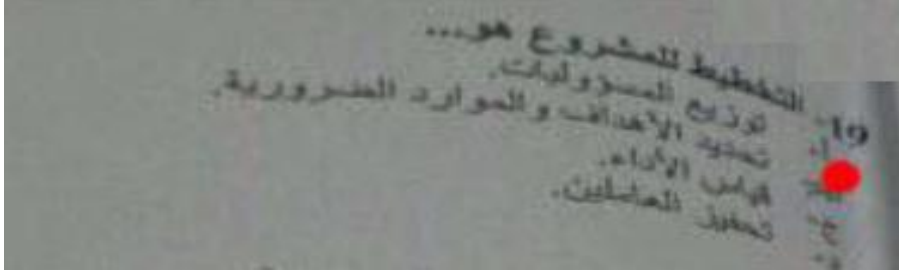 19- التخطيط للمشروع هو...
أ- توزيع المسؤوليات.
ب- تحديد الأهداف والموارد الضرورية.
ج- قياس الأداء.
د- تحفيز العاملين.